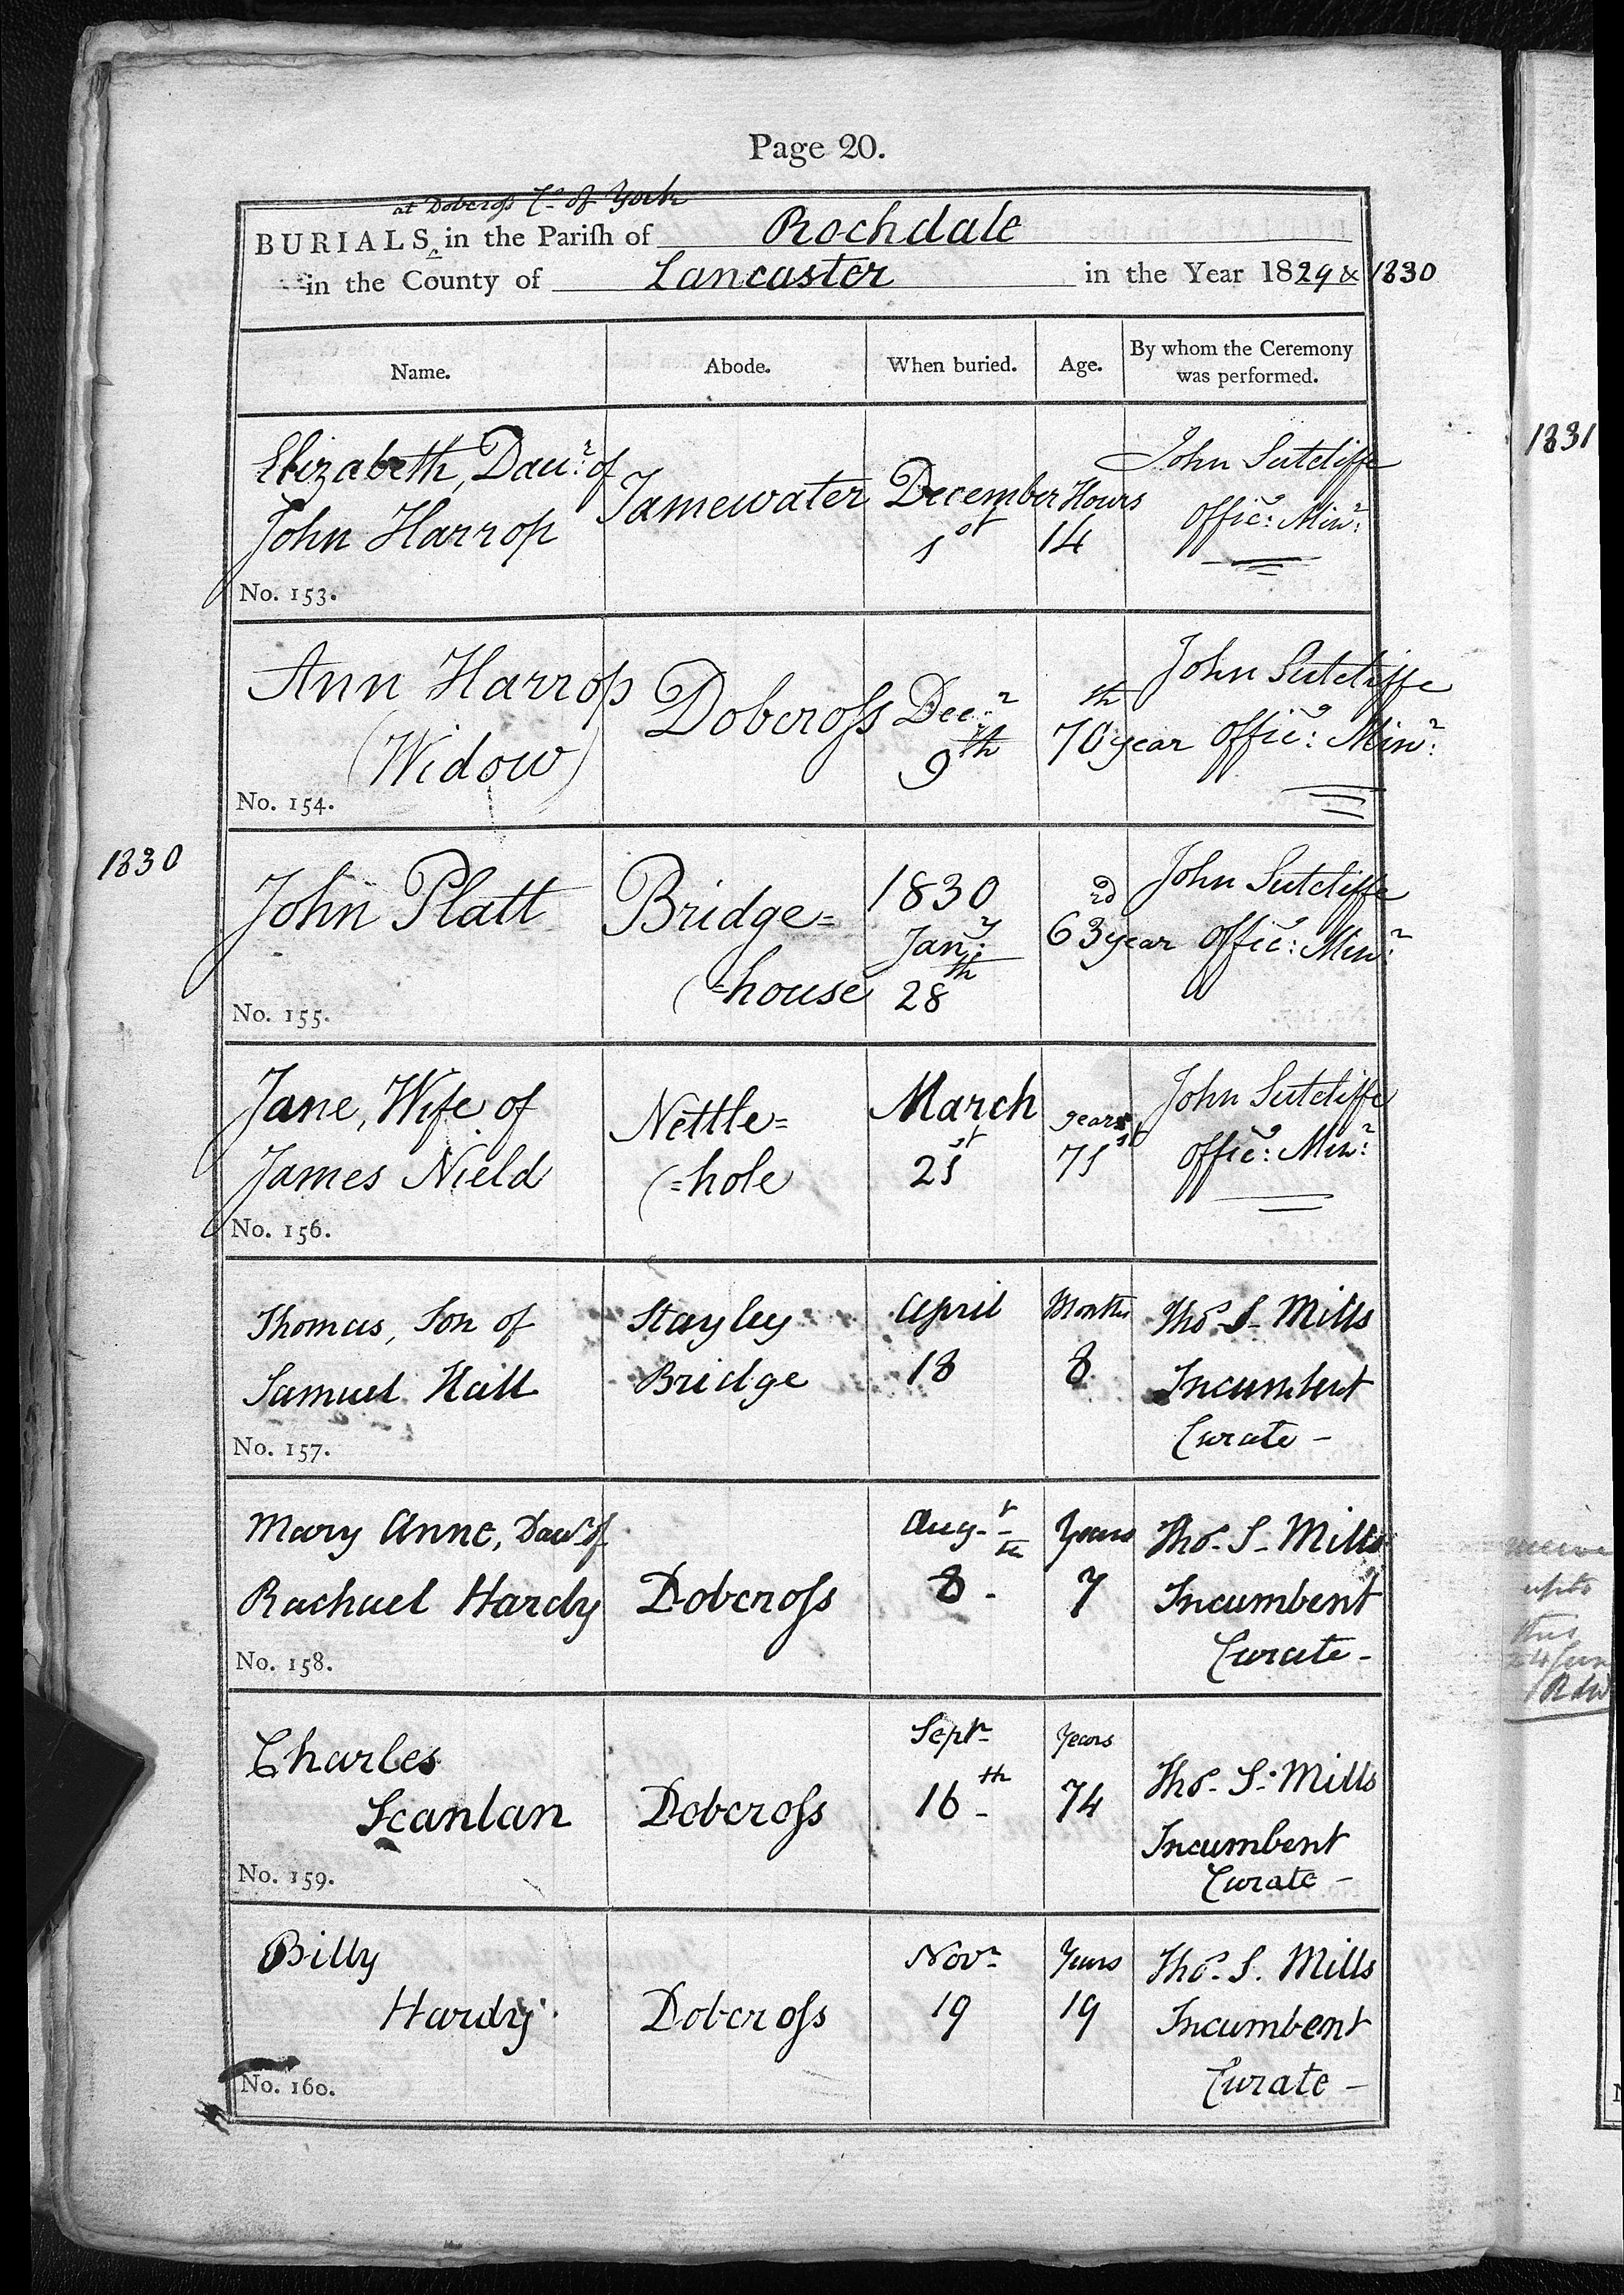 Page 20.
at Dobcross Co. of York
BURIALS, in the Pariſh of Rochdale
in the County of Lancaster in the Year 1829 & 1830
Name. Abode. When buried. Age. By whom the Ceremony was performed.
Elizabeth, Daur. of
John Harrop
Tamewater
December
1st
Hours
14
John Sutcliffe
Offic: Minr:
No. 153.
Ann Harrop
(Widow)
Dobcroſs
Decr.
9th
th
70 year
John Sutcliffe
Offic: Minr:
No. 154.
1830
John Platt
Bridge=
(=house
1830
Jany:
28th
rd
63 year
John Sutcliffe
Offic: Minr:
No. 155.
Jane, Wife of
James Nield
Nettle=
(=hole
March
21st
years
71st
John Sutcliffe
Offic: Minr:
No. 156.
Thomas, Son of
Samuel Hall
Stayley
Bridge
April
18
Months
8
Thos. S. Mills
Incumbent
Curate -
No. 157.
Mary Anne, Daur. of
Rachael Hardy
Dobcroſs
Augt.
8th -
Years
7
Thos. S. Mills
Incumbent
Curate -
No. 158.
Charles
Scanlan
Dobcroſs
Septr.
16th -
Years
74
Thos. S. Mills
Incumbent
Curate -
No. 159.
Billy
Hardy
Dobcroſs
Novr.
19
Years
19
Thos. S. Mills
Incumbent
Curate -
No. 160.
1831